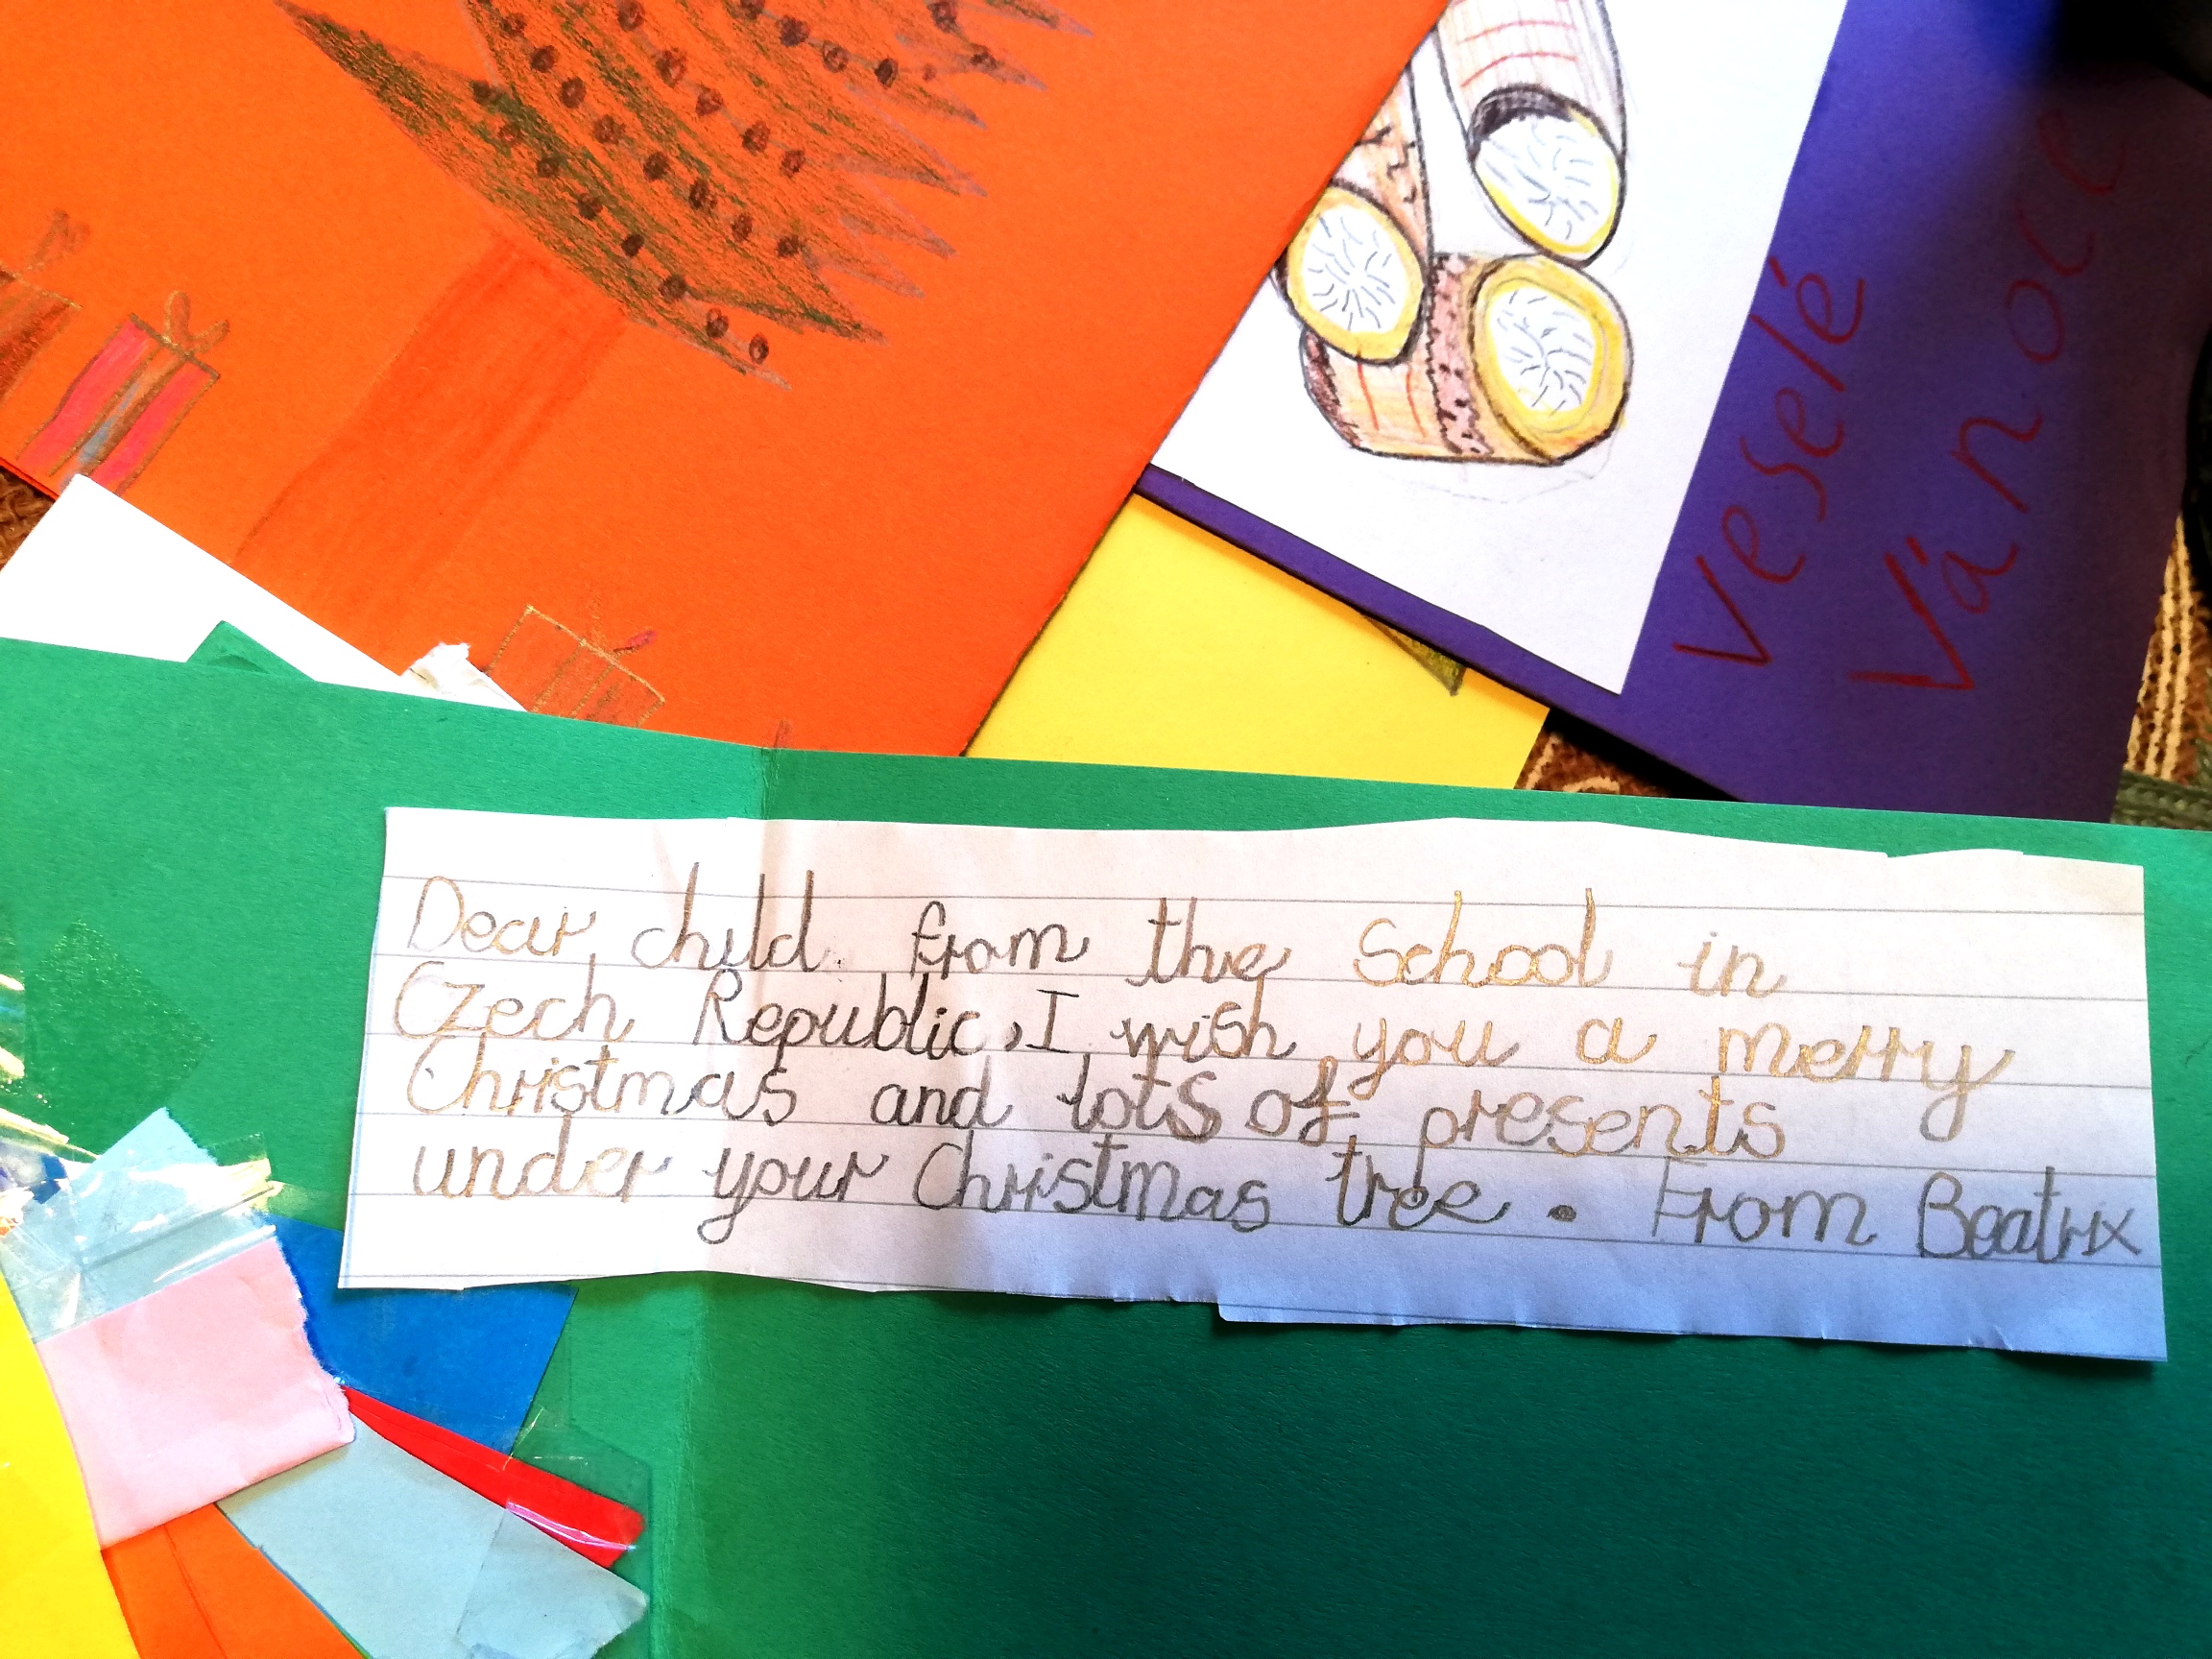 Veselé
Vánoce
Dear child from the School in
Czech Republic, I wish you a merry
Christmas and lots of presents
under your Christmas tree. From Beatrix